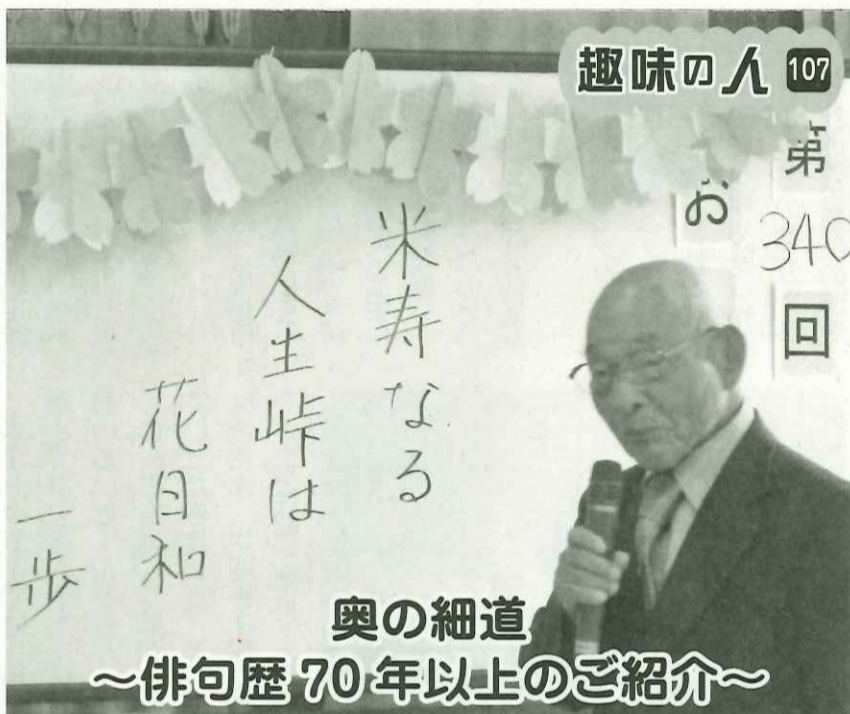 趣味の人 107
第
340
回
お
米寿なる
人生峠は
花日和
一歩
奥の細道
～俳句歴70年以上のご紹介～